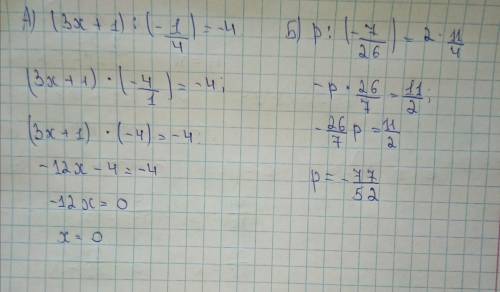 А) (3x + 1) : (- 1/4) = -4
(3x+1) · (-4/1) = -4;
(3x+1) · (-4) = -4
-12x - 4 = -4
-12x = 0
x = 0
Б) p : (-7/26) = 2 · 11/4
-p · 26/7 = 11/2;
-26/7 p = 11/2
p = -77/52